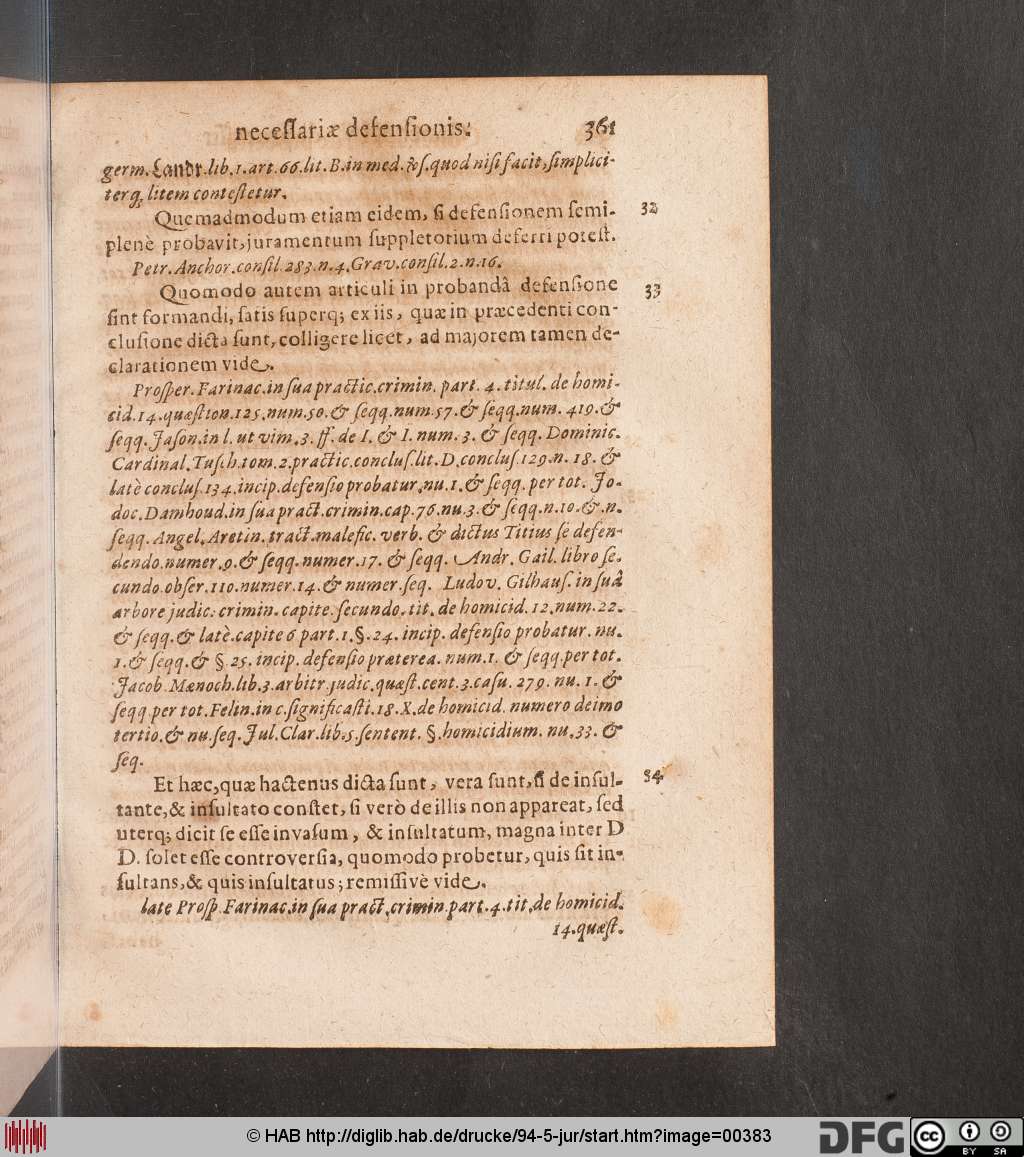 necessariæ defensionis.
361
germ. Landr. lib. 1. art. 66. lit. B. in med. & s. quod nisi facit, simplici-
terq; litem contestetur.
Quemadmodum etiam eidem, si defensionem semi-
plenè probavit, juramentum suppletorium deferri potest.
32
Petr. Anchor. consil. 283. n. 4. Grav. consil. 2. n. 16.
Quomodo autem articuli in probandâ defensione
33
sint formandi, satis superq; ex iis, quæ in præcedenti con-
clusione dicta sunt, colligere licet, ad majorem tamen de-
clarationem vide.
Prosper. Farinac. in sua practic. crimin. part. 4. titul. de homi-
cid. 14. quæstion. 125. num. 50. & seqq. num. 57. & seqq. num. 419. &
seqq. Jason. in l. ut vim. 3. ff. de I. & I. num. 3. & seqq. Dominic.
Cardinal. Tusch. tom. 2. practic. conclus. lit. D. conclus. 129. n. 18. &
latè conclus. 134. incip. defensio probatur. nu. 1. & seqq. per tot. Jo-
doc. Damhoud. in sua pract. crimin. cap. 76. nu. 3. & seqq. n. 10. & n.
seqq. Angel. Aretin. tract. malefic. verb. & dictus Titius se defen-
dendo. numer. 9. & seqq. numer. 17. & seqq. Andr. Gail. libro se-
cundo obser. 110. numer. 14. & numer. seq. Ludov. Gilhaus. in suâ
arbore judic. crimin. capite. secundo. tit. de homicid. 12. num. 22.
& seqq. & latè. capite 6 part. 1. §. 24. incip. defensio probatur. nu.
1. & seqq. & §. 25. incip. defensio præterea. num. 1. & seqq. per tot.
Jacob. Mænoch. lib. 3. arbitr. judic. quæst. cent. 3. casu. 279. nu. 1. &
seqq per tot. Felin. in c. significasti. 18. X. de homicid. numero deimo
tertio. & nu. seq. Jul. Clar. lib. 5. sentent. §. homicidium. nu. 33. &
seq.
Et hæc, quæ hactenus dicta sunt, vera sunt, si de insul-
34
tante, & insultato constet, si verò de illis non appareat, sed
uterq; dicit se esse invasum, & insultatum, magna inter D
D. solet esse controversia, quomodo probetur, quis sit in-
sultans, & quis insultatus; remissivè vide.
late Prosp. Farinac. in sua pract. crimin. part. 4. tit. de homicid.
14. quæst.
© HAB http://diglib.hab.de/drucke/94-5-jur/start.htm?image=00383
DFG
cc
BY SA